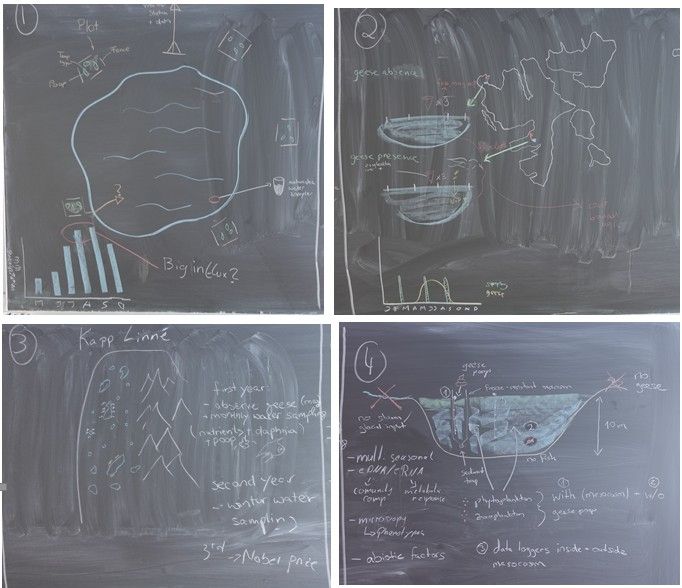 1
Plot
Fence
Poop
?
water
sampler
Big influx?
M J J A S O
2
geese absence
geese presence
J F M A M J J A S O N D
geese
3
Kapp Linné
first year:
- observe geese
+ monthly water sampling
(nutrients + daphnia
+ poop)
second year
- winter water
sampling
3rd → Nobel prize
4
geese
poop
Freeze-resistant mesocosm
no
geese
no stream/
glacial input
10m
no fish
sediment
trap
- mult. seasonal
- eDNA/eRNA
community
comp
metabolic
response
- microscopy
↳ phenotypes
- abiotic factors
phytoplankton
zooplankton
① with (mesocosm) + ② w/o
geese poop
③ data loggers inside + outside
mesocosm